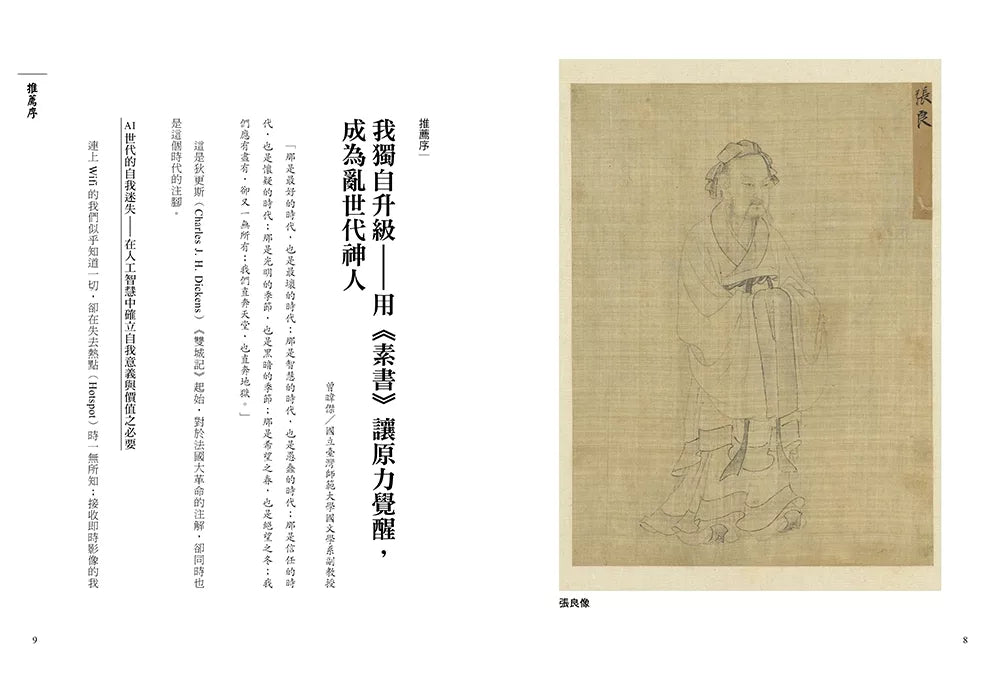 張良
張良像
8
推薦序
我獨自升級——用《素書》讓原力覺醒，
成為亂世代神人
曾暐傑／國立臺灣師範大學國文學系副教授
「那是最好的時代，也是最壞的時代；那是智慧的時代，也是愚蠢的時代；那是信任的時
代，也是懷疑的時代；那是光明的季節，也是黑暗的季節；那是希望之春，也是絕望之冬；我
們應有盡有，卻又一無所有；我們直奔天堂，也直奔地獄。」
這是狄更斯（Charles J. H. Dickens）《雙城記》起始，對於法國大革命的注解，卻同時也
是這個時代的注腳。
AI 世代的自我迷失——在人工智慧中確立自我意義與價值之必要
連上 Wifi 的我們似乎知道一切，卻在失去熱點（Hotspot）時一無所知；接收即時影像的我
推薦序
9